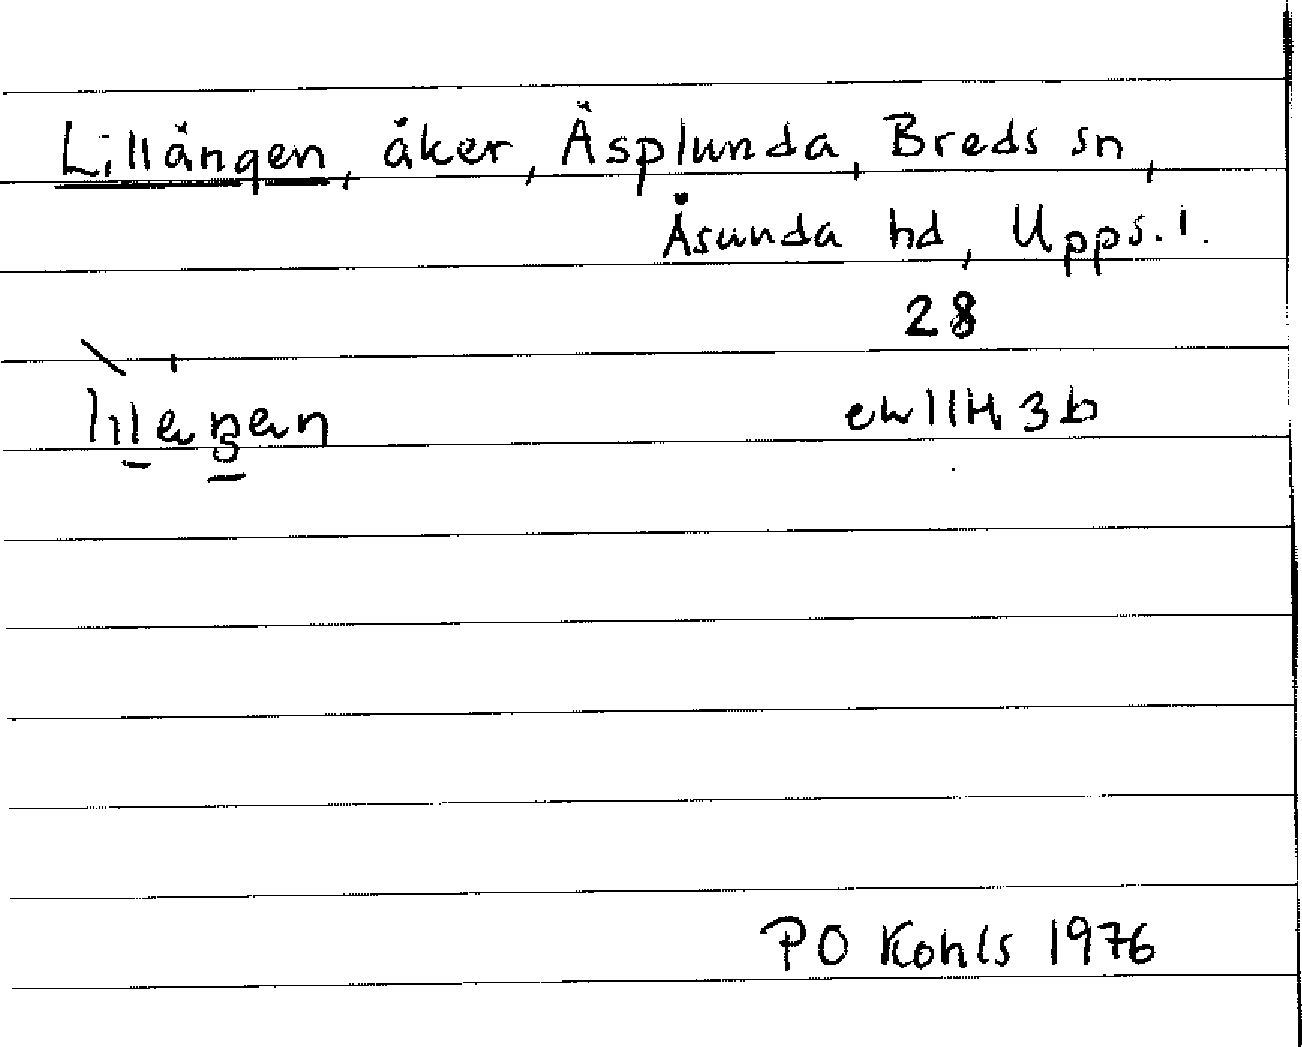 Lillängen, åker, Äsplunda, Breds sn,
Åsunda hd, Upps. l.
28
ek 11H 3b
PO Kohls 1976